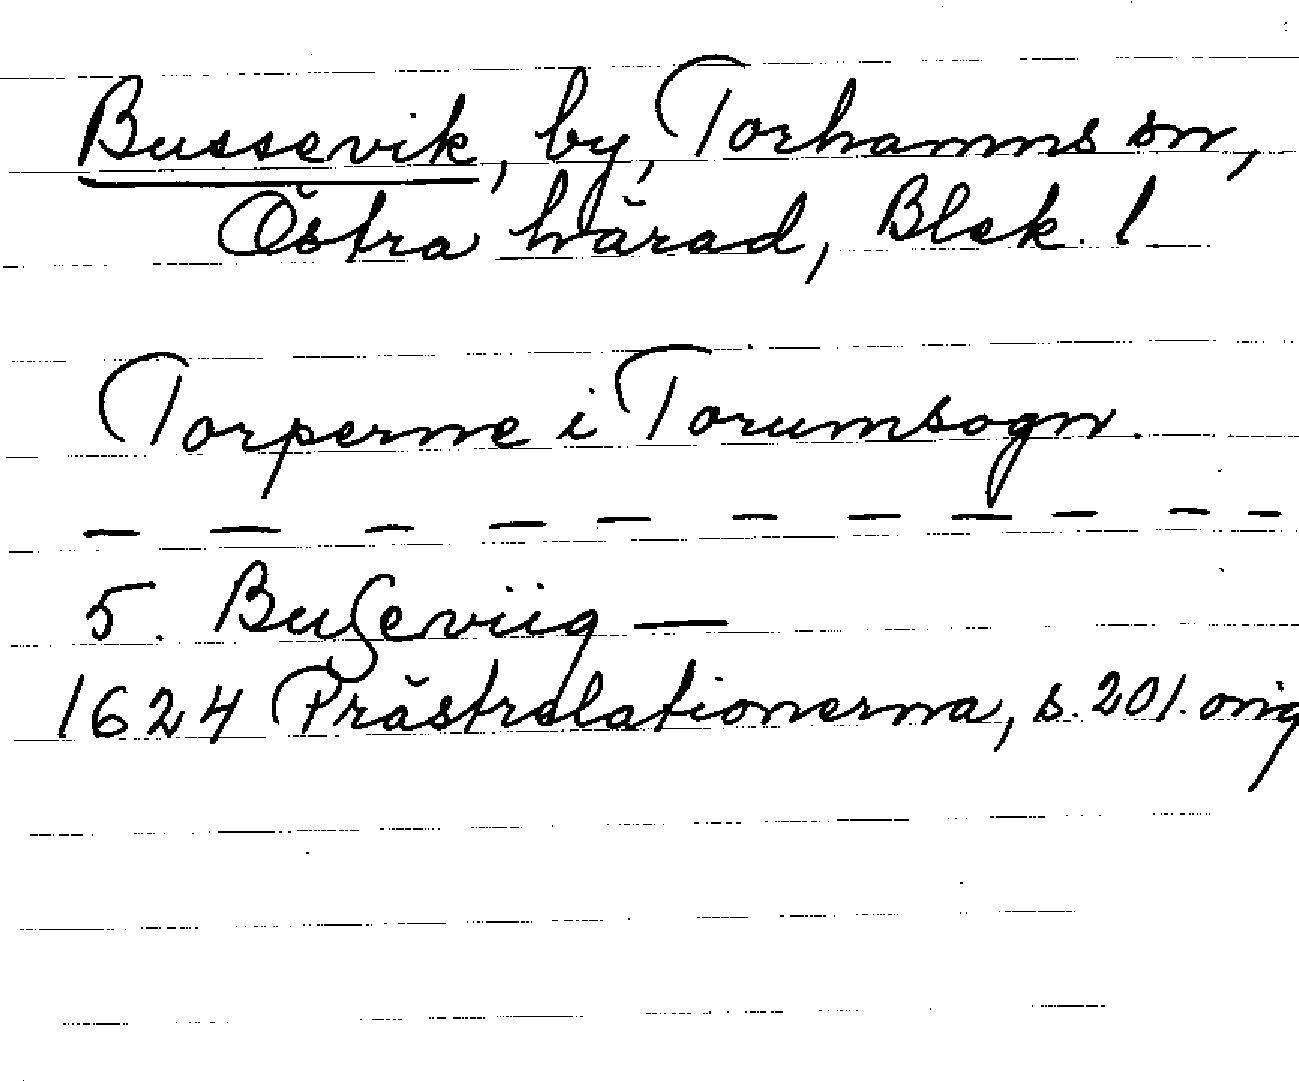 Bussevik, by, Torhamns sn,
Östra härad, Blek. l
Torperne i Torumsogn.
— — — — — — — — — — —
5. Bußeviig —
1624 Prästrelationerna, s. 201. orig